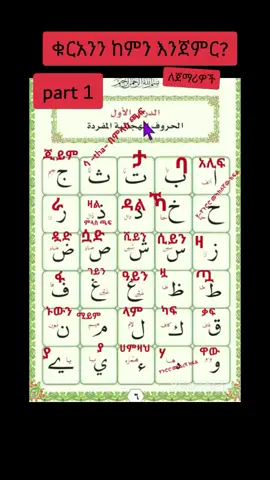 ቁርአንን ከምን እንጀምር?
ለጀማሪዎች
part 1
الدرس الأول
الحروف الهجائية المفردة
አሊፍ ባ ታ -tha- በምላስ ጫፍ ጂይም
ا ب ت ث ج
ኻ ዳል ዛል ምላስ ጫፍ ራ
ح خ د ذ ر
ዛ ሲይን ሺይን ሷድ ዷድ
ز س ش ص ض
ጧ ዓይን ገይን ፋ
ط ظ ع غ ف
ቃፍ ካፍ ላም ሚይም ኑውን
ق ك ل م ن
ዋው ሃ ሀምዛህ ያ ያ
و ه ء ي ے
٦